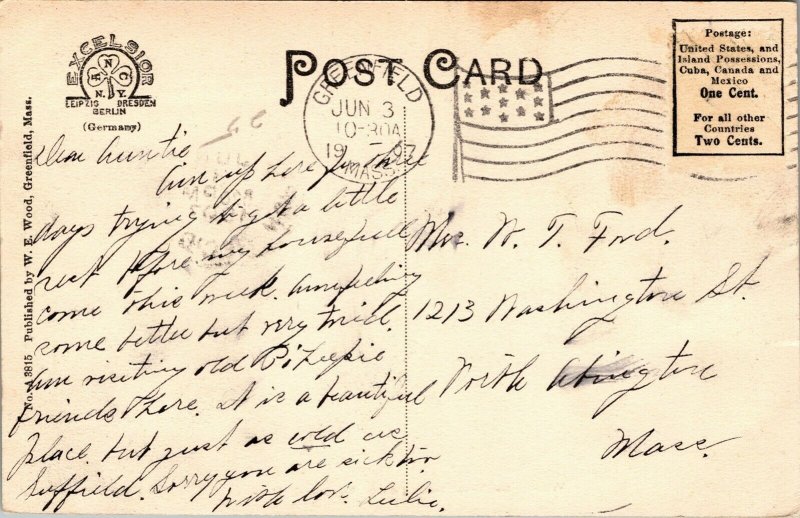 EXCELSIOR
ANC
N.Y.
LEIPZIG DRESDEN
BERLIN
(Germany)
POST CARD
GREENFIELD
JUN 3
10-30A
1907
MASS.
Postage:
United States, and
Island Possessions,
Cuba, Canada and
Mexico
One Cent.
For all other
Countries
Two Cents.
No. A 3815 Published by W. E. Wood, Greenfield, Mass.
Dear Auntie
Am up here for three
days trying to get a little
rest before my housefull
come this week. Am feeling
some better but very tired.
Am visiting old
friends here. It is a beautiful
place but just as cold as
Suffield. Sorry you are sick too.
With love. Lulie.
Mrs. W. T. Ford.
1213 Washington St.
North Abington
Mass.